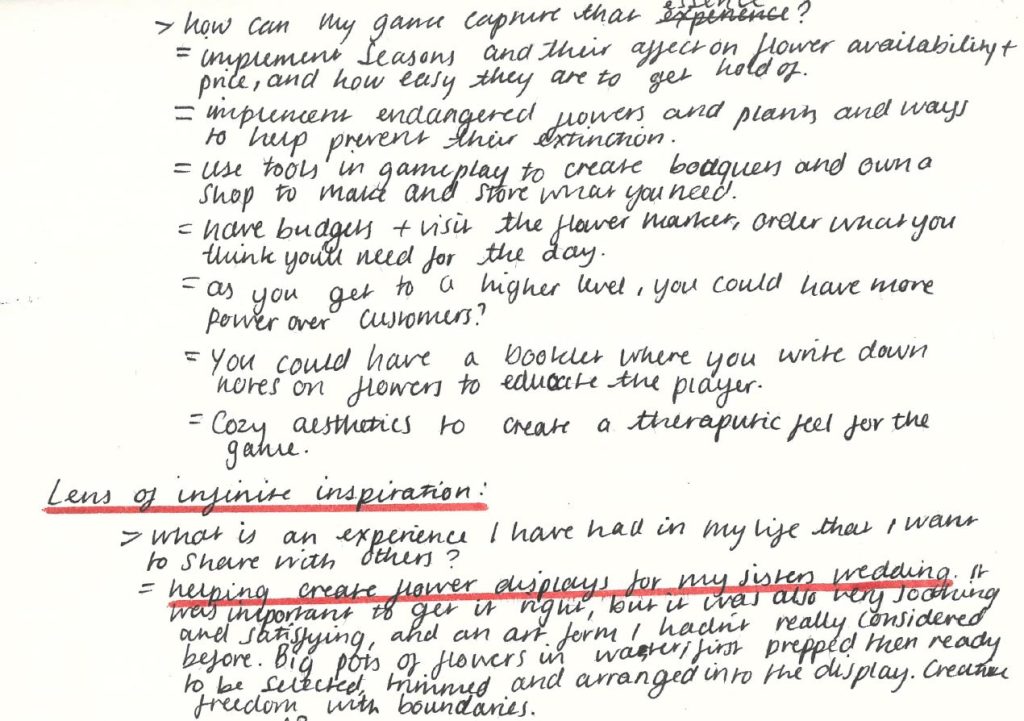 > how can my game capture that experience essence?
= implement seasons and their affect on flower availability +
price, and how easy they are to get hold of.
= implement endangered flowers and plants and ways
to help prevent their extinction.
= use tools in gameplay to create boquets and own a
shop to make and store what you need.
= have budgets + visit the flower market, order what you
think you'll need for the day.
= as you get to a higher level, you could have more
power over customers?
= You could have a booklet where you write down
notes on flowers to educate the player.
= Cozy aesthetics to create a theraputic feel for the
game.
Lens of infinite inspiration:
> what is an experience I have had in my life that I want
to share with others?
= helping create flower displays for my sisters wedding. it
was important to get it right, but it was also very soothing
and satisfying, and an art form I hadn't really considered
before. Big pots of flowers in water, first prepped then ready
to be selected, trimmed and arranged into the display. Creative
freedom with boundaries.